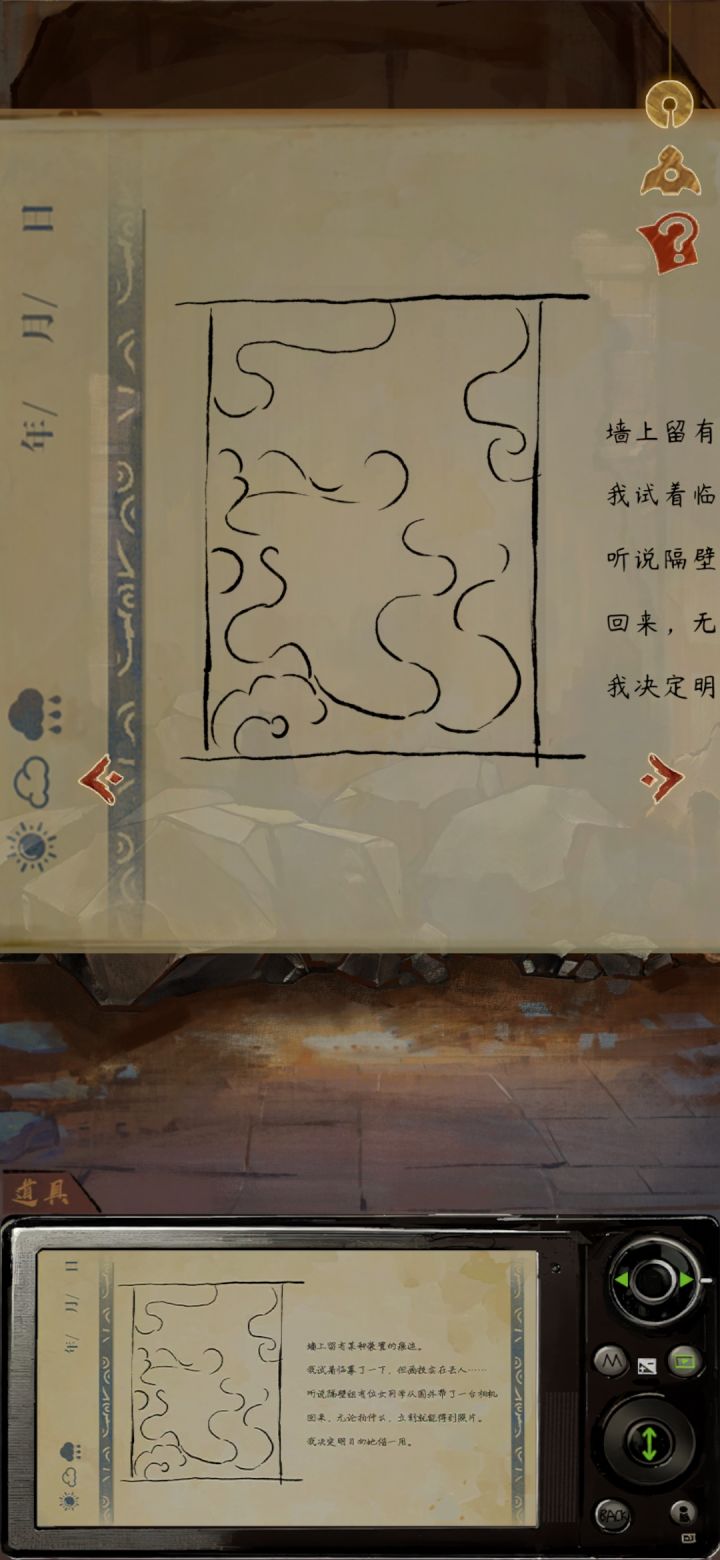 年/ 月/ 日
墙上留有
我试着临
听说隔壁
回来，无
我决定明
道具
年/ 月/ 日
墙上留有某种装置的描述。
我试着临摹了一下，但画技实在丢人……
听说隔壁组有位女同学从国外带了一台相机
回来，无论拍什么，立刻就能得到照片。
我决定明日向她借一用。
M
BACK